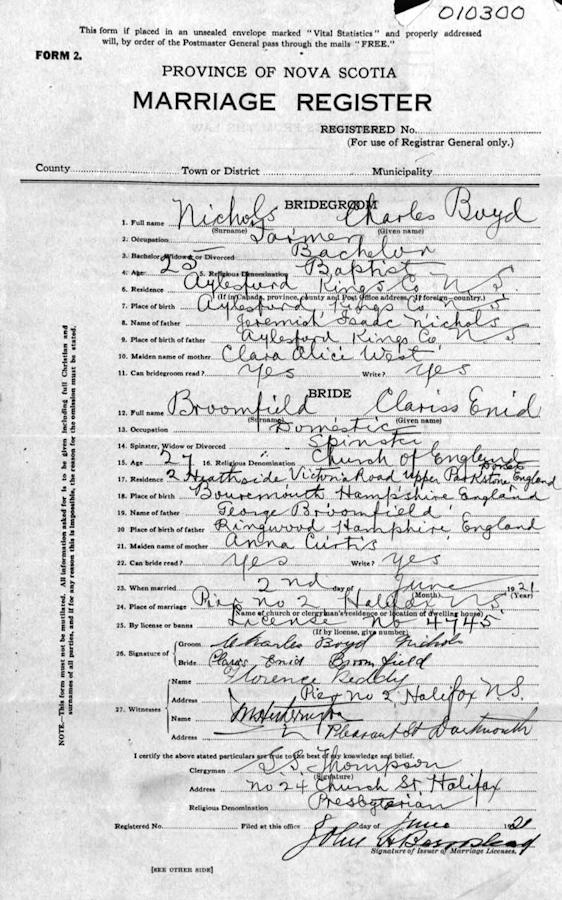 010300
This form if placed in an unsealed envelope marked "Vital Statistics" and properly addressed
will, by order of the Postmaster General pass through the mails "FREE."
FORM 2.
PROVINCE OF NOVA SCOTIA
MARRIAGE REGISTER
REGISTERED No.
(For use of Registrar General only.)
County Town or District Municipality
BRIDEGROOM
1. Full name Nichols Charles Boyd
(Surname) (Given name)
2. Occupation Farmer
3. Bachelor, Widower or Divorced Bachelor
4. Age 25 5. Religious Denomination Baptist
6. Residence Aylesford Kings Co N S
(If in Canada, province, county and Post Office address. If foreign—country.)
7. Place of birth Aylesford Kings Co N S
8. Name of father Jeremiah Isaac Nichols
9. Place of birth of father Aylesford Kings Co N S
10. Maiden name of mother Clara Alice West
11. Can bridegroom read? Yes Write? Yes
BRIDE
12. Full name Broomfield Clariss Enid
(Surname) (Given name)
13. Occupation Domestic
14. Spinster, Widow or Divorced Spinster
15. Age 27 16. Religious Denomination Church of England
17. Residence 2 Heathside Victoria Road Upper Parkstone Dorset England
18. Place of birth Bouremouth Hampshire England
19. Name of father George Broomfield
20. Place of birth of father Ringwood Hampshire England
21. Maiden name of mother Anna Curtis
22. Can bride read? Yes Write? Yes
23. When married 2nd day of June 1921
(Month) (Year)
24. Place of marriage Pier no 2 Halifax N.S.
(Name of church or clergyman's residence or location of dwelling house)
25. By license or banns License No 4745
(If by license, give number)
26. Signature of Groom Charles Boyd Nichols
Bride Clariss Enid Broomfield
27. Witnesses Name Florence Reddy
Address Pier no 2 Halifax N.S.
Name
Address Pleasant St Dartmouth
I certify the above stated particulars are true to the best of my knowledge and belief.
Clergyman Thompson
(Signature)
Address No 24 Church St. Halifax
Religious Denomination Presbyterian
Registered No. Filed at this office day of June 1921
John
Signature of Issuer of Marriage Licenses.
[SEE OTHER SIDE]
NOTE.—This form must not be mutilated. All information asked for is to be given including full Christian and
surnames of all parties, and if for any reason this is impossible, the reason for the omission must be stated.